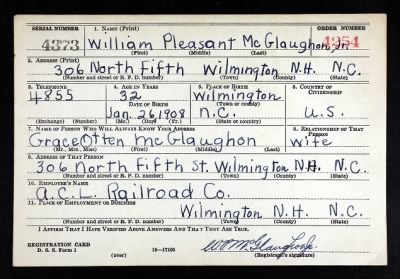 SERIAL NUMBER 1. NAME (Print) ORDER NUMBER
4373 William Pleasant McGlaughon, Jr 4354
(First) (Middle) (Last)
2. ADDRESS (Print)
306 North Fifth Wilmington N.H. N.C.
(Number and street or R. F. D. number) (Town) (County) (State)
3. TELEPHONE 4. AGE IN YEARS 5. PLACE OF BIRTH 6. COUNTRY OF CITIZENSHIP
4855 32 Wilmington
DATE OF BIRTH (Town or county)
Jan. 26 1908 N.C. U.S.
(Exchange) (Number) (Mo.) (Day) (Yr.) (State or country)
7. NAME OF PERSON WHO WILL ALWAYS KNOW YOUR ADDRESS 8. RELATIONSHIP OF THAT PERSON
Grace Otten McGlaughon wife
(Mr., Mrs., Miss) (First) (Middle) (Last)
9. ADDRESS OF THAT PERSON
306 North Fifth St. Wilmington N.H. N.C.
(Number and street or R. F. D. number) (Town) (County) (State)
10. EMPLOYER'S NAME
A.C.L. Railroad Co.
11. PLACE OF EMPLOYMENT OR BUSINESS
Wilmington N.H. N.C.
(Number and street or R. F. D. number) (Town) (County) (State)
I AFFIRM THAT I HAVE VERIFIED ABOVE ANSWERS AND THAT THEY ARE TRUE.
REGISTRATION CARD
D. S. S. Form 1 16—17105 (Registrant's signature)